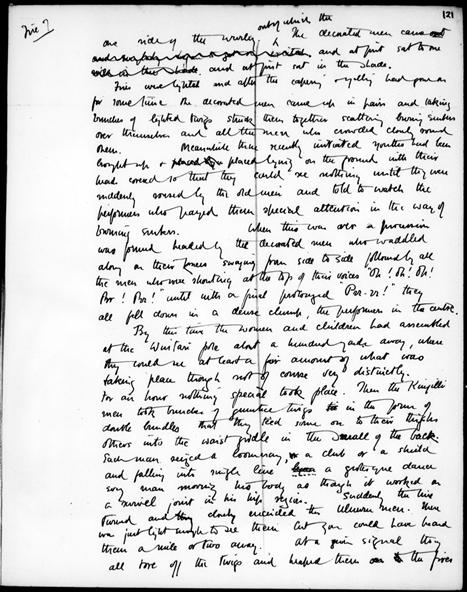 Fire ?
121
out of which the
one side of the wurley The decorated men came out
and at first sat to one
side in the shade. and at first sat in the shade.
Fires were lighted and after the capering & yelling had gone on
for some time the decorated men came up in pairs and taking
bunches of lighted twigs struck them together scattering burning embers
over themselves and all the men who crowded closely round
them. Meanwhile three recently initiated youths had been
brought up & placed lying on the ground with their
heads covered so that they could see nothing until they were
suddenly roused by the old men and told to watch the
performers who payed them special attention in the way of
burning embers. When this was over a procession
was formed headed by the decorated men who waddled
along on their knees swaying from side to side followed by all
the men who were shouting at the top of their voices "Oh! Oh! Oh!
Prr! Prr!" until with a final prolonged "Prr-rr!" they
all fell down in a dense clump, the performers in the centre.
By this time the women and children had assembled
at the pole about a hundred yards away, where
they could see at least a fair amount of what was
taking place though not of course very distinctly.
For an hour nothing special took place. Then the Kingilli
men took bunches of gumtree twigs in the form of
double bundles that they tied some on to their thighs
others into the waist girdle in the small of the back.
Each man seized a boomerang or a club or a shield
and falling into single line a grotesque dance
every man moving his body as though it worked on
a swivel joint in his hip region. Suddenly the line
turned and closely encircled the Uluuru men. There
was just light enough to see them but you could have heard
them a mile or two away. At a given signal they
all tore off the twigs and heaped them on the fires